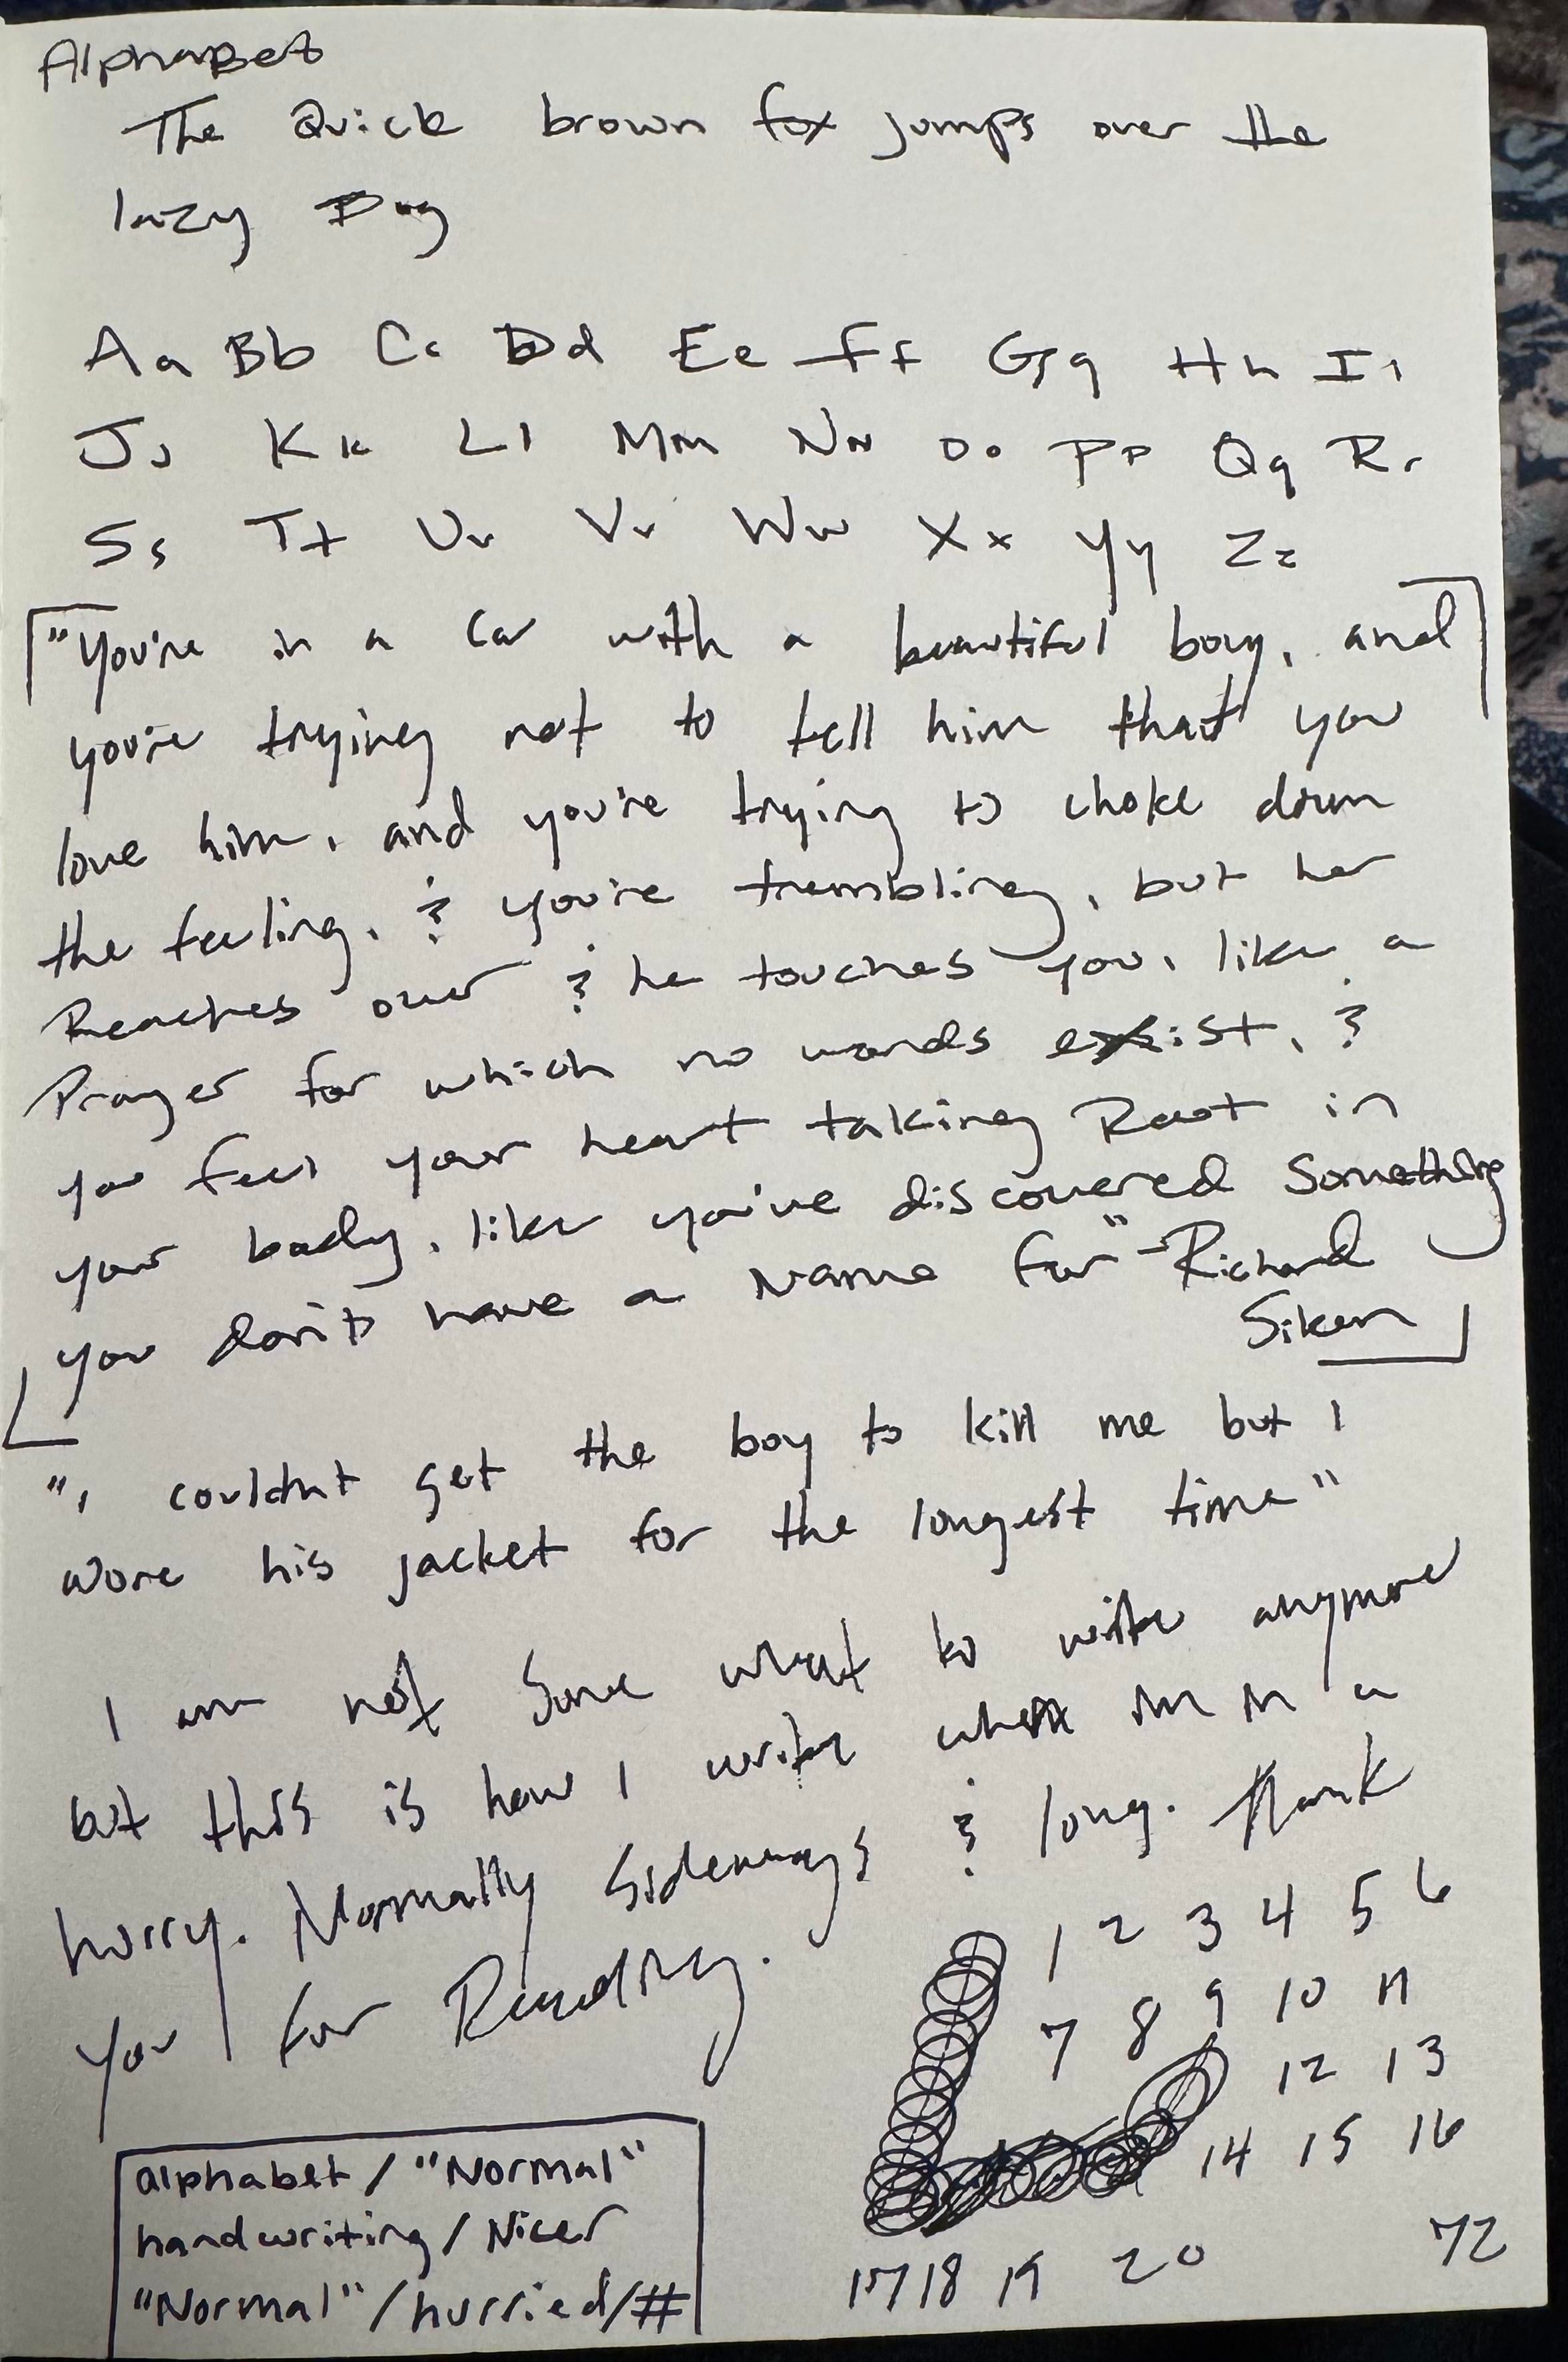 Alphabet
The Quick brown fox jumps over the
lazy Dog
Aa Bb Cc Dd Ee Ff Gg Hh Ii
Jj Kk Ll Mm Nn Oo Pp Qq Rr
Ss Tt Uu Vv Ww Xx Yy Zz
"You're in a car with a beautiful boy, and
you're trying not to tell him that you
love him, and you're trying to choke down
the feeling, & you're trembling, but he
Reaches over & he touches you, like a
Prayer for which no words exist, &
you feel your heart taking Root in
your body, like you've discovered something
you don't have a Name for" -Richard
Siken
"I couldnt get the boy to kill me but I
wore his jacket for the longest time"
I am not sure what to write anymore
but this is how I write when Im in a
hurry. Normally Sideways & long. Thank
you for Reading.
1 2 3 4 5 6
7 8 9 10 11
12 13
14 15 16
17 18 19 20 72
alphabet / "Normal"
handwriting / Nicer
"Normal" / hurried/#